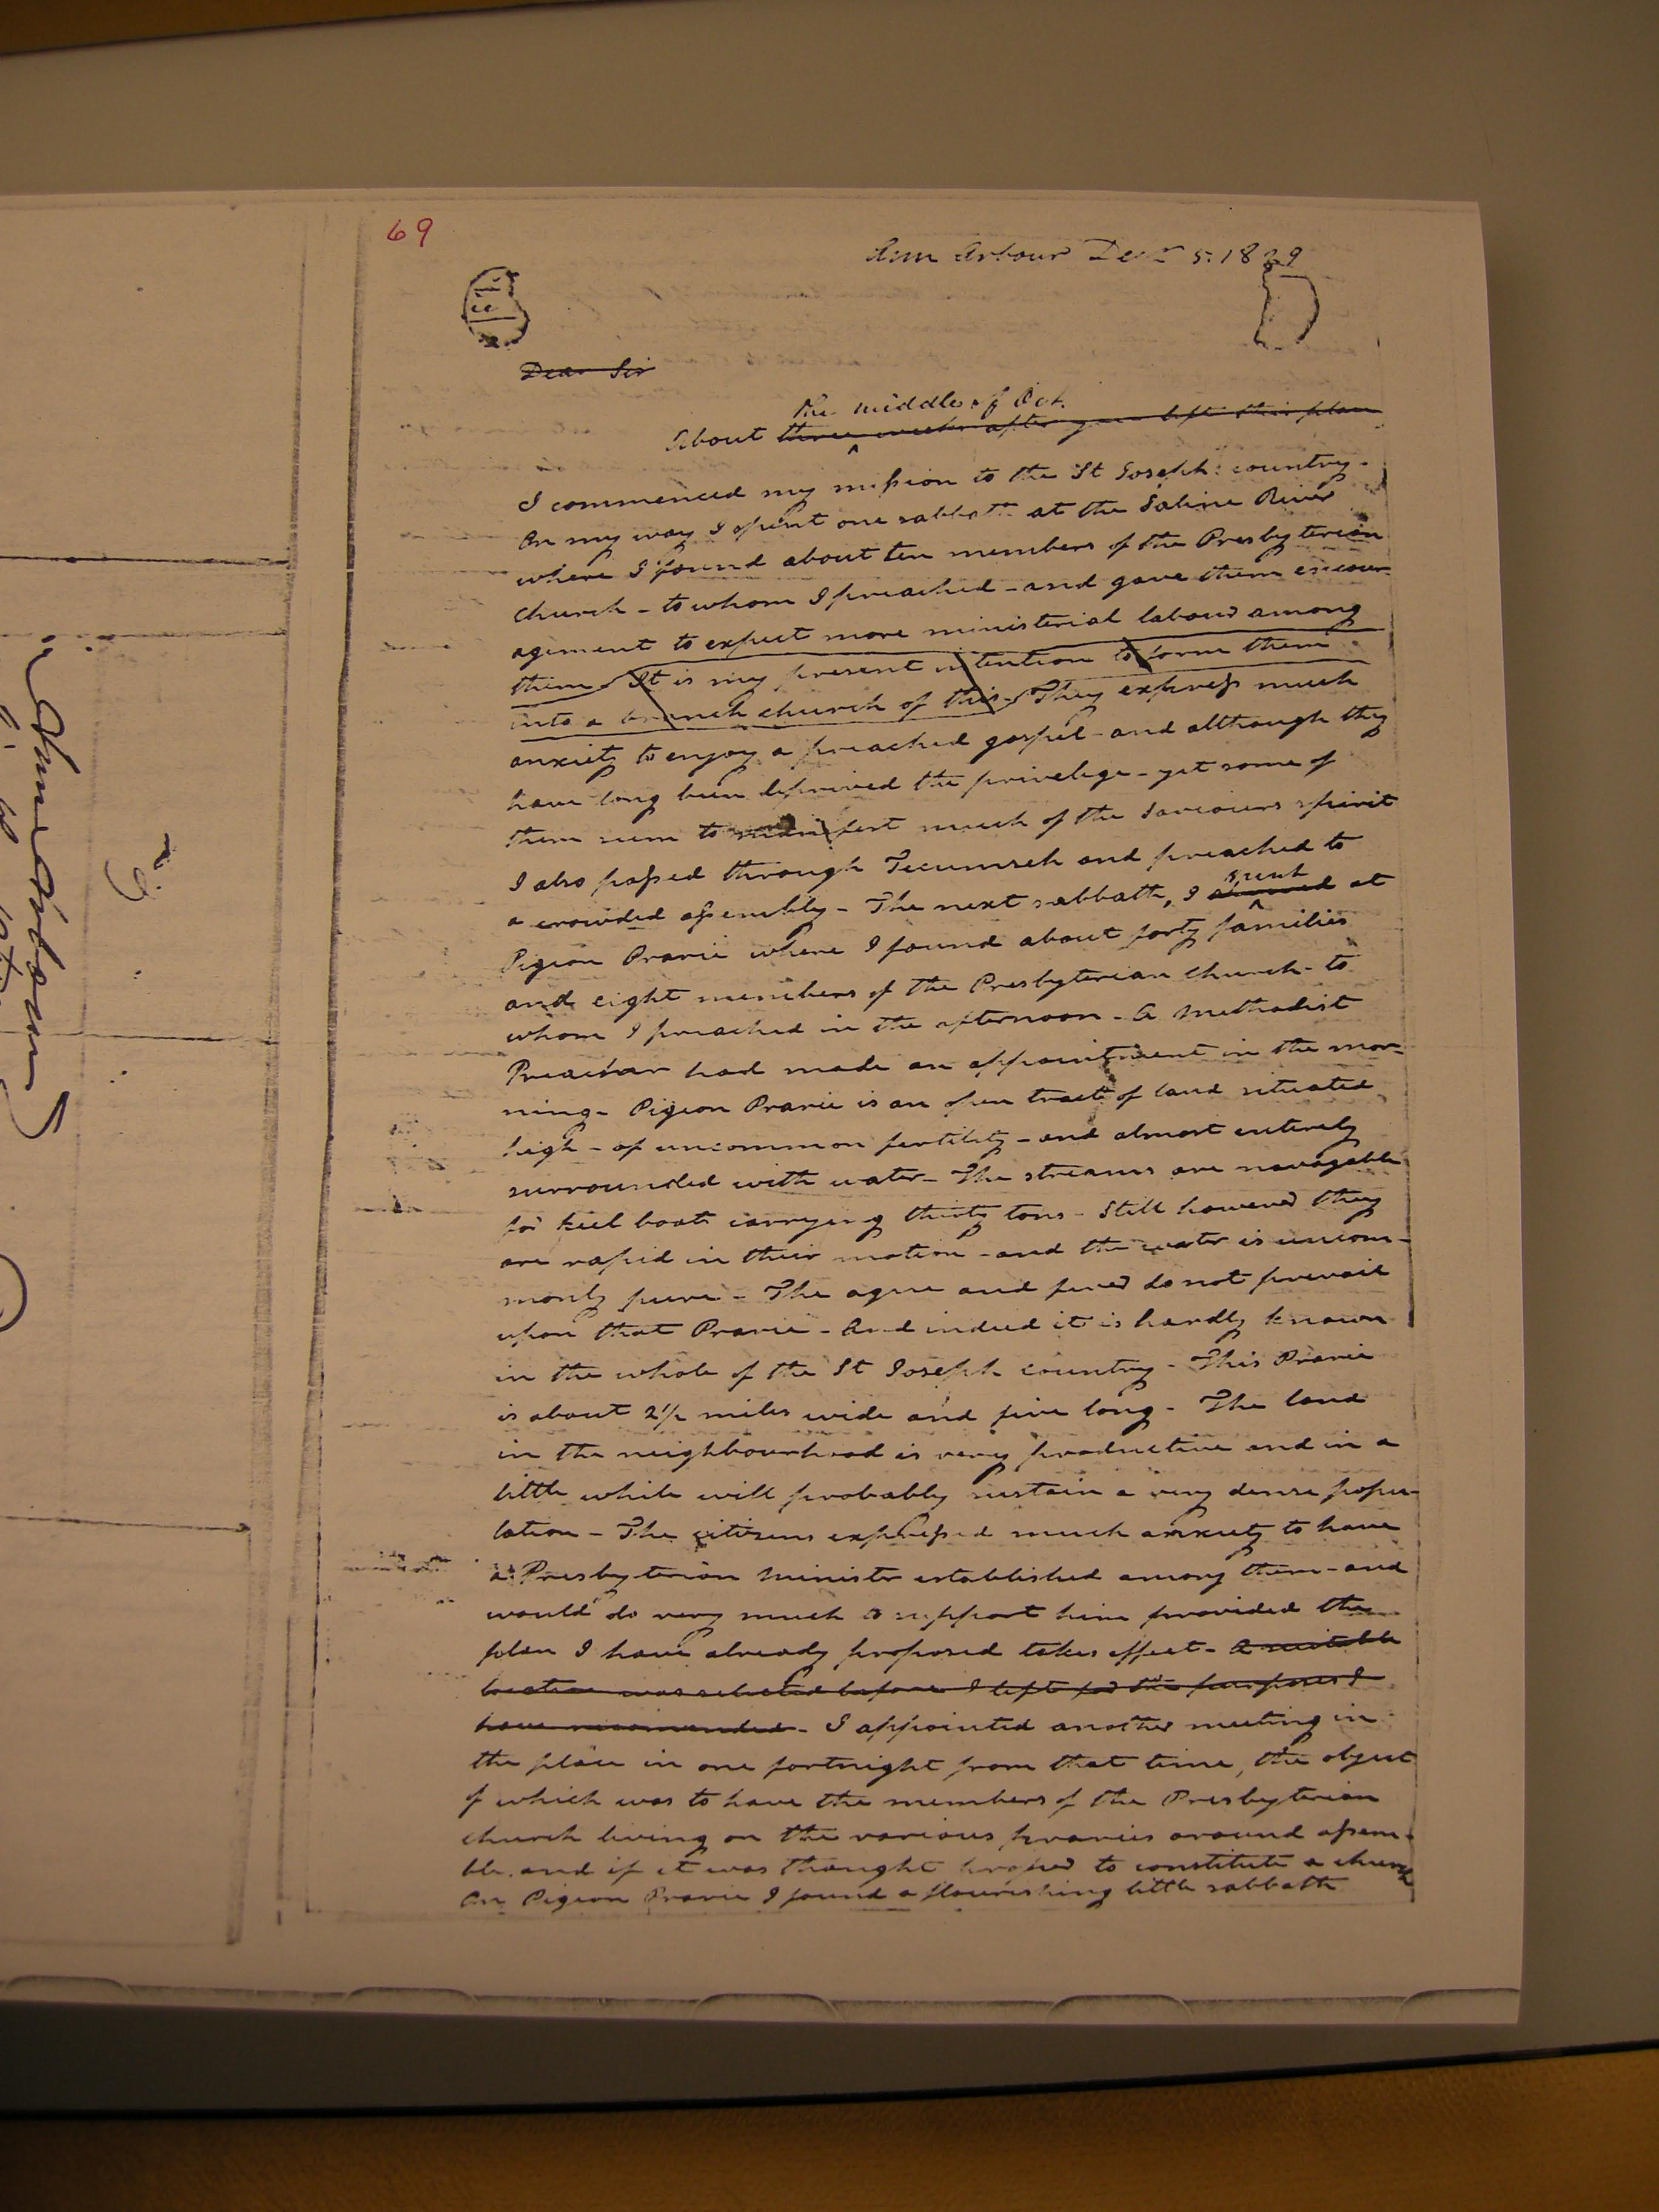 69
Ann Arbour Decr 5. 1829
Dear Sir
the middle of Oct.
About three weeks after you left this place
I commenced my mission to the St Joseph country-
On my way I spent one sabbath at the Saline River
where I found about ten members of the Presbyterian
church - to whom I preached - and gave them encour-
agement to expect more ministerial labour among
them. It is my present intention to form them
into a branch church of this. They express much
anxiety to enjoy a preached gospel - and although they
have long been deprived the privelege - yet some of
them seem to manifest much of the Saviours spirit
I also passed through Tecumseh and preached to
a crowded assembly - The next sabbath, I spent at
Pigeon Pravie where I found about forty families
and eight members of the Presbyterian church - to
whom I preached in the afternoon - A Methodist
Preacher had made an appointment in the mor-
ning - Pigeon Pravie is an open tract of land situated
high - of uncommon fertility - and almost entirely
surrounded with water - The streams are navagable
for keel boats carrying thirty tons - Still however they
are rapid in their motion - and the water is uncom-
monly pure - The ague and fever do not prevail
upon that Pravie - And indeed it is hardly known
in the whole of the St Joseph country - This Pravie
is about 2½ miles wide and five long - The land
in the neighbourhood is very productive and in a
little while will probably sustain a very dense popu-
lation - The citizens expressed much anxiety to have
a Presbyterian Minister established among them - and
would do very much to support him provided the
plan I have already proposed takes effect - A suitable
location was selected before I left for the purposes I
have recommended - I appointed another meeting in
the place in one fortnight from that time, the object
of which was to have the members of the Presbyterian
church living on the various pravies around assem-
ble. and if it was thought proper to constitute a church
On Pigeon Pravie I found a flourishing little sabbath